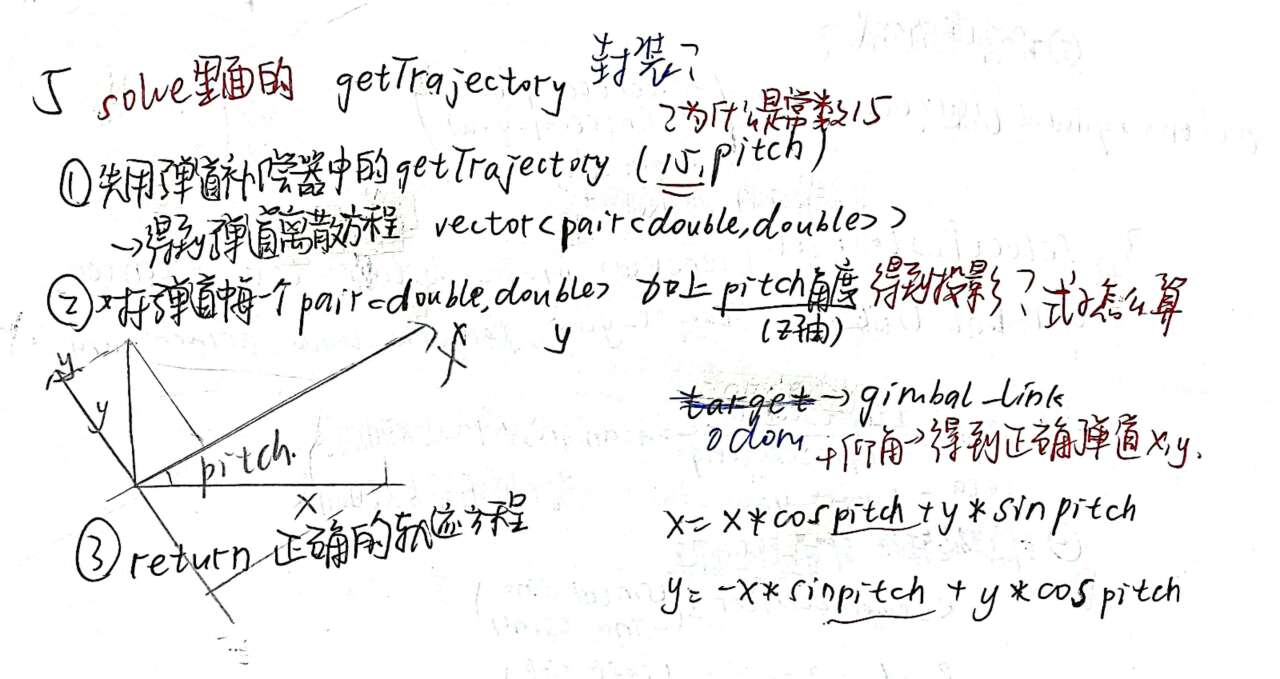 5 solve里面的 getTrajectory 封装?
?为什么是常数15
① 先用弹道补偿器中的getTrajectory (15, pitch)
→得到弹道离散方程 vector<pair<double,double>>
② 对弹道中每一个pair<double,double> 加上pitch角度 得到投影? 式子怎么算
(Z轴)
x y
y
y
pitch.
x
target → gimbal_link
odom
+仰角→得到正确弹道x,y.
x= x*cospitch+y*sinpitch
y= -x*sinpitch + y*cospitch
③ return 正确的轨迹方程